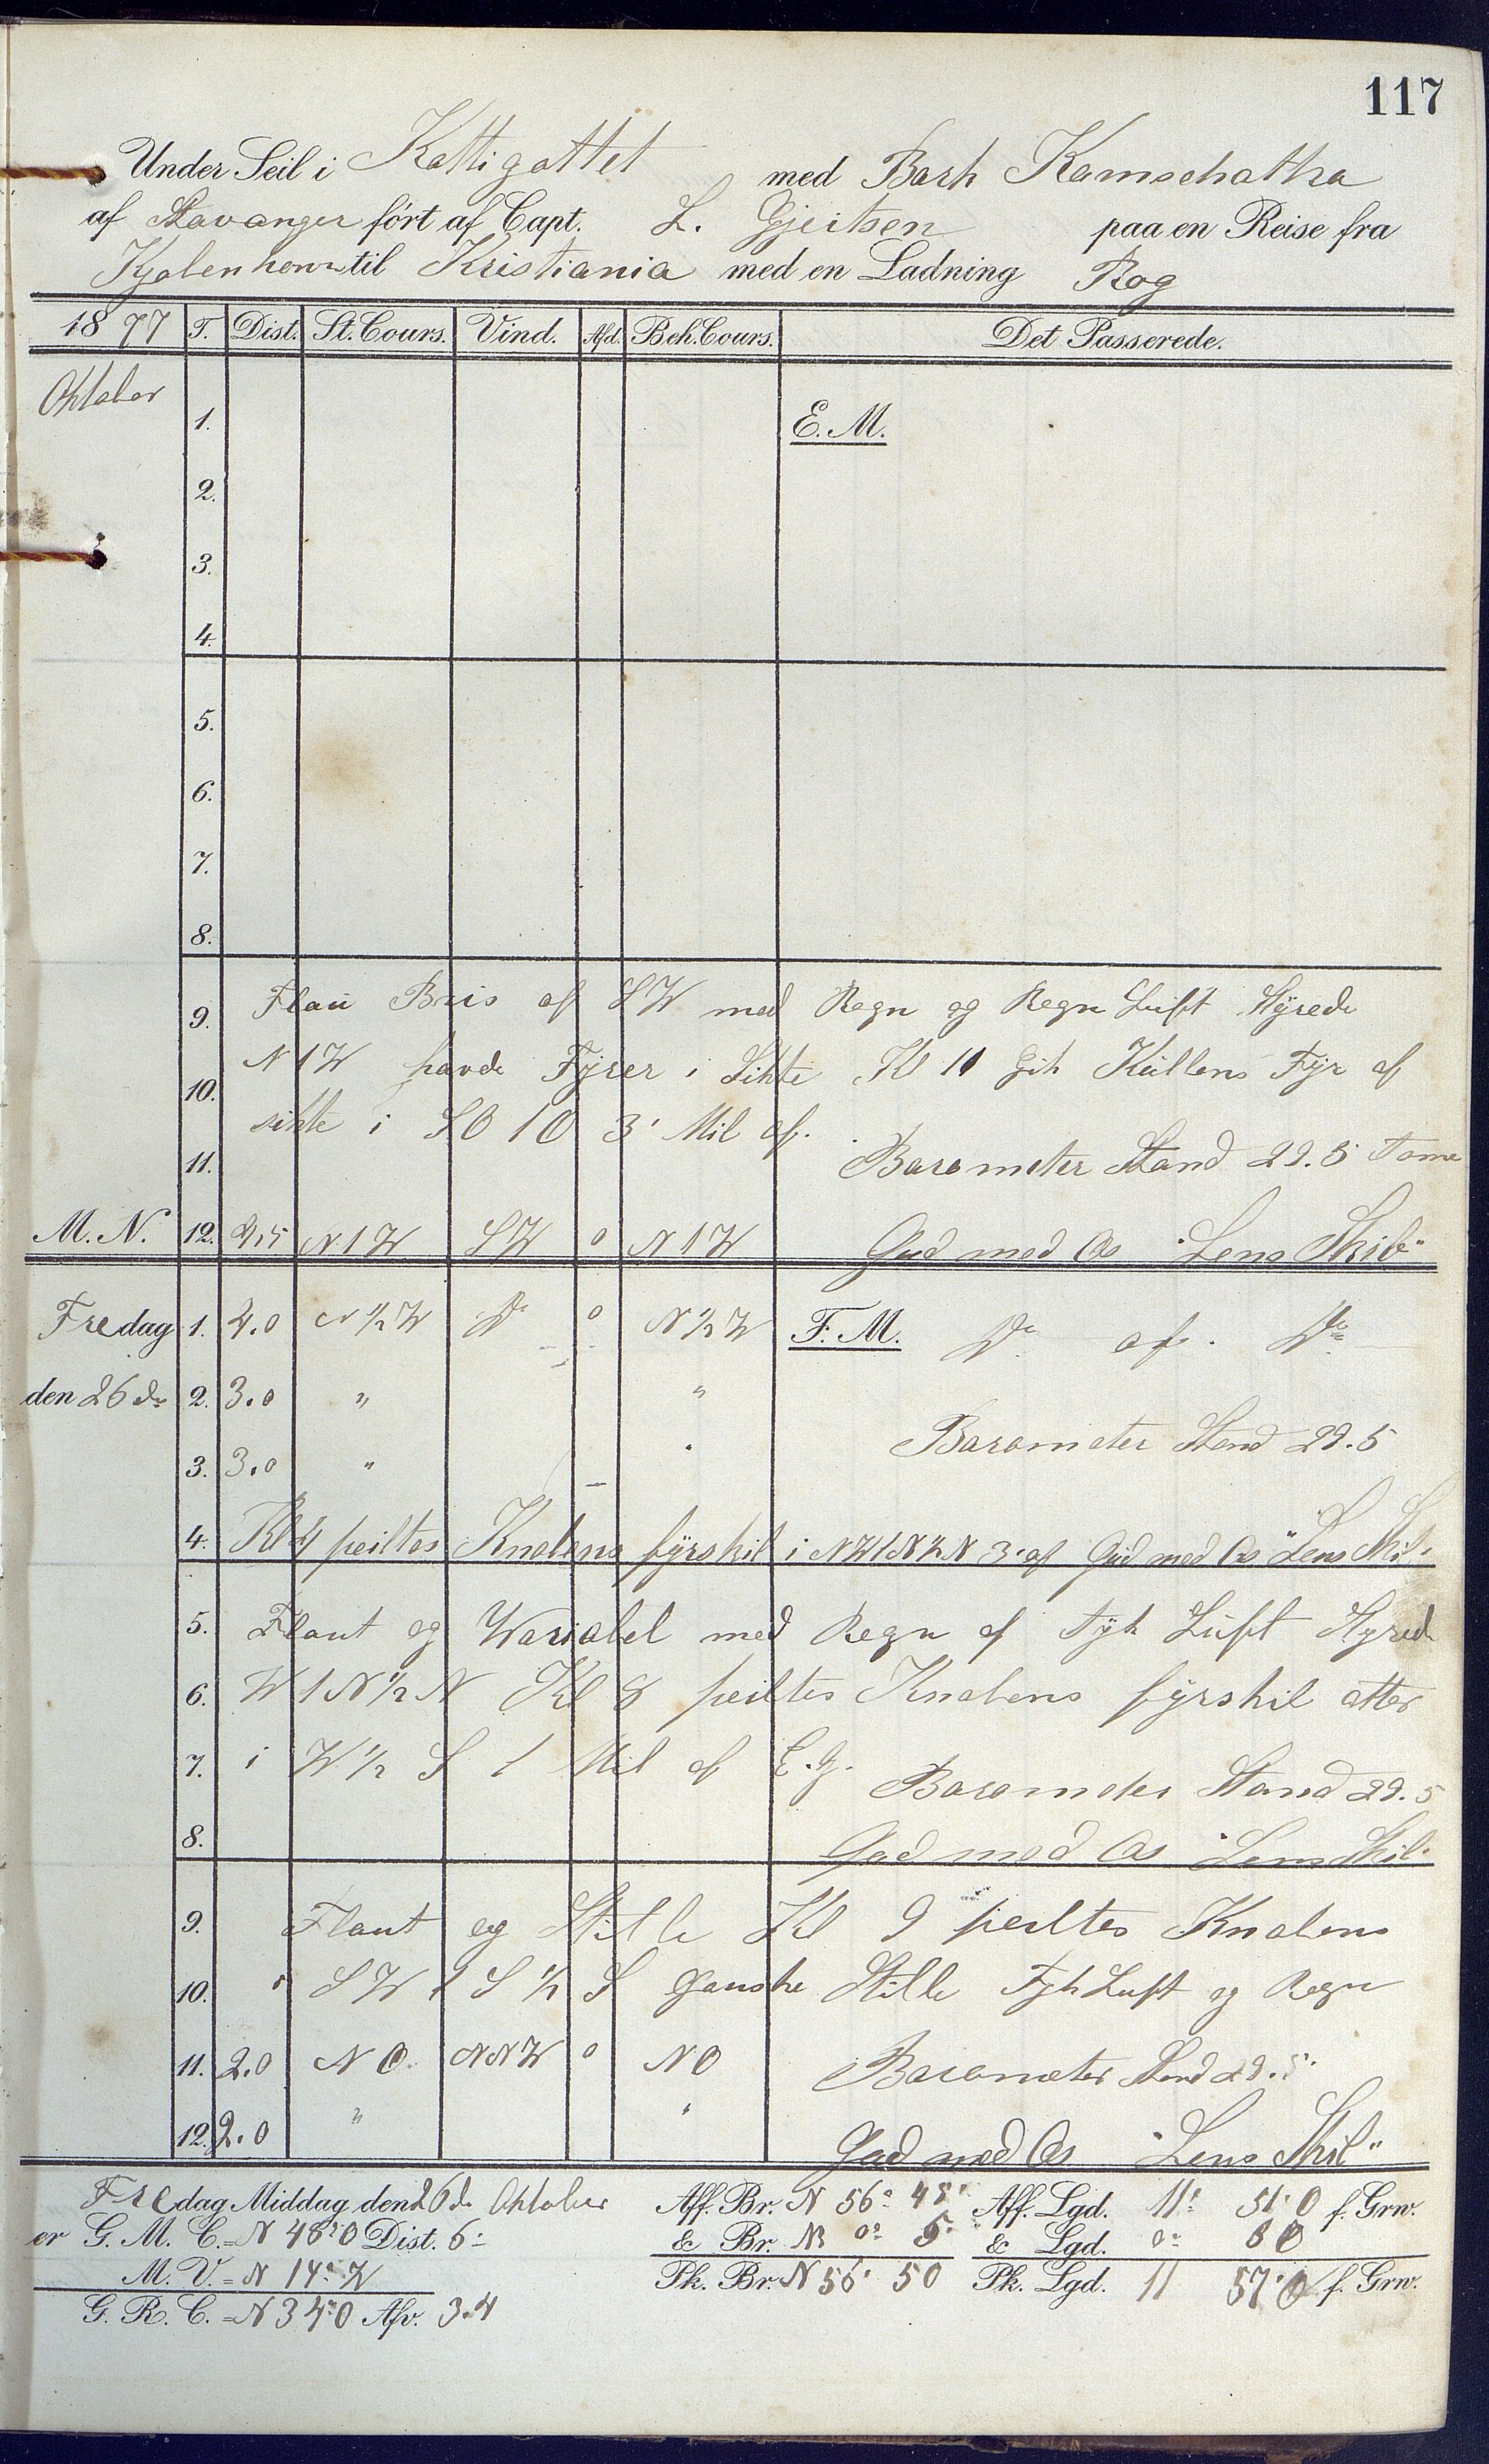 117
Under Seil i Kattigattet med Bark Kamschatka
af Stavanger ført af Capt. L. Gjertsen paa en Reise fra
Kjøbenhavn til Kristiania med en Ladning Rog
18 77 T. Dist. St. Cours. Vind. Afd. Beh. Cours. Det Passerede.
Oktober
1. E. M.
2.
3.
4.
5.
6.
7.
8.
9. Flau Bris af SW med Regn og Regn Luft Styrede
N 1 W havde Fyrer i Sikte Kl 10 Gik Kullens Fyr af
10.
sikte i SO 1 O 3' Mil af.
11. Barometer Stand 29.5 Tome
M. N. 12. 2,5 N 1 W SW 0 N 1 W Gud med Os "Lens Skib"
Fredag 1. 4.0 N ½ W Do 0 N ½ W F. M. Do af. Do
den 26de 2. 3.0 " "
Barometer Stand 29.5
3. 3.0 " "
4. Kl 4 peiltes Knobens fyrskib i NW 1 N ½ N 3' af Gud med Os "Lens Skib"
5. Flaut og Wariabel med Regn af Tyk Luft Styrede
6. W 1 N ½ N Kl 8 peiltes Knobens fyrskib atter
7. i W ½ S 1 Mil af E.G. Barometer Stand 29.5
8. Gud med Os "Lens Skib"
9. Flaut og Stille Kl 9 peiltes Knobens
10. i SW 1 S ½ S Ganske Stille Tyk Luft og Regn
11. 2.0 NO NNW 0 NO Barometer Stand 29.5
12. 2.0 " " Gud med Os "Lens Skib"
Fredag Middag den 26de Oktober Aff. Br. N 56° 45' Aff. Lgd. 11° 51' O f. Grw.
er G. M. C. = N 48° O Dist. 6' & Br. N 0° 5' & Lgd. 0° 6 O
M. V. = N 14° W Pk. Br. N 56° 50 Pk. Lgd. 11 57' O f. Grw.
G. R. C. = N 34° O Afv. 3.4